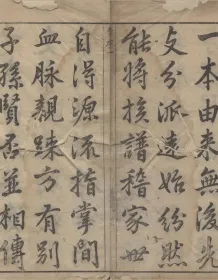 一本由来無後先
支分派遠始紛然
能將族譜稽家世
自得源流指掌間
血脉親疎方有别
子孫賢否並相傳